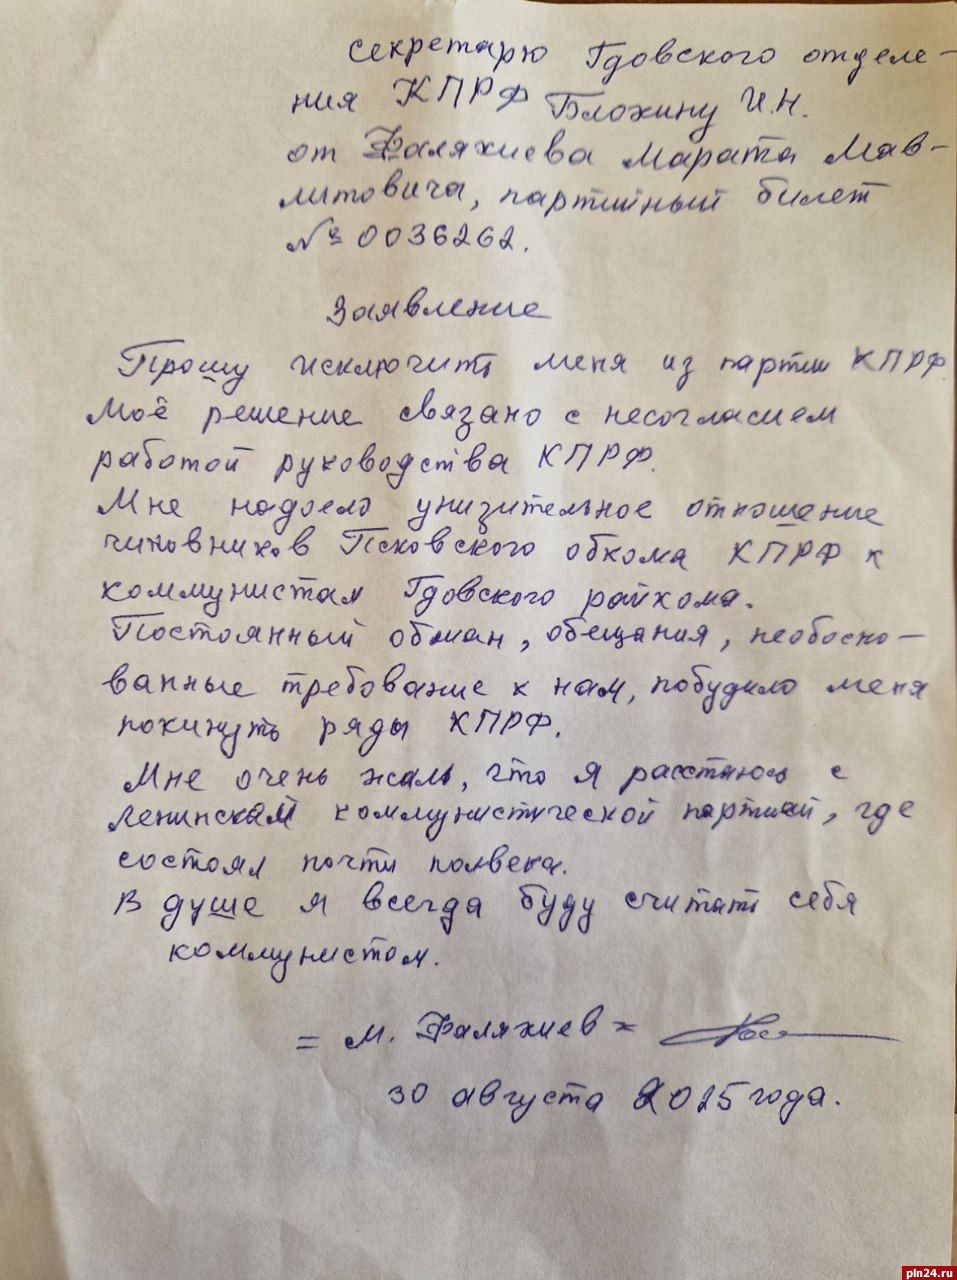 Секретарю Гдовского отделе-
ния КПРФ Блохину И.Н.
от Фаляхиева Марата Мав-
литовича, партийный билет
№ 0036262.
Заявление
Прошу исключить меня из партии КПРФ.
Моё решение связано с несогласием
работой руководства КПРФ.
Мне надоело унизительное отношение
чиновников Псковского обкома КПРФ к
коммунистам Гдовского райкома.
Постоянный обман, обещания, необосно-
ванные требование к нам, побудило меня
покинуть ряды КПРФ.
Мне очень жаль, что я расстаюсь с
Ленинской коммунистической партией, где
состоял почти полвека.
В душе я всегда буду считать себя
коммунистом.
= М. Фаляхиев =
30 августа 2025 года.
pln24.ru